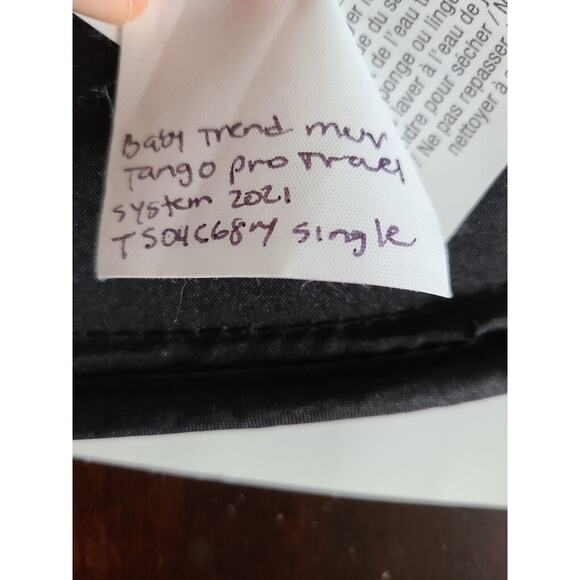 Baby Trend muv
Tango pro Travel
system 2021
TS04C68M single
du sa
de l'eau t
ponge ou linge
laver à l'eau de j
dre pour sécher / N
/ Ne pas repasser
nettoyer à